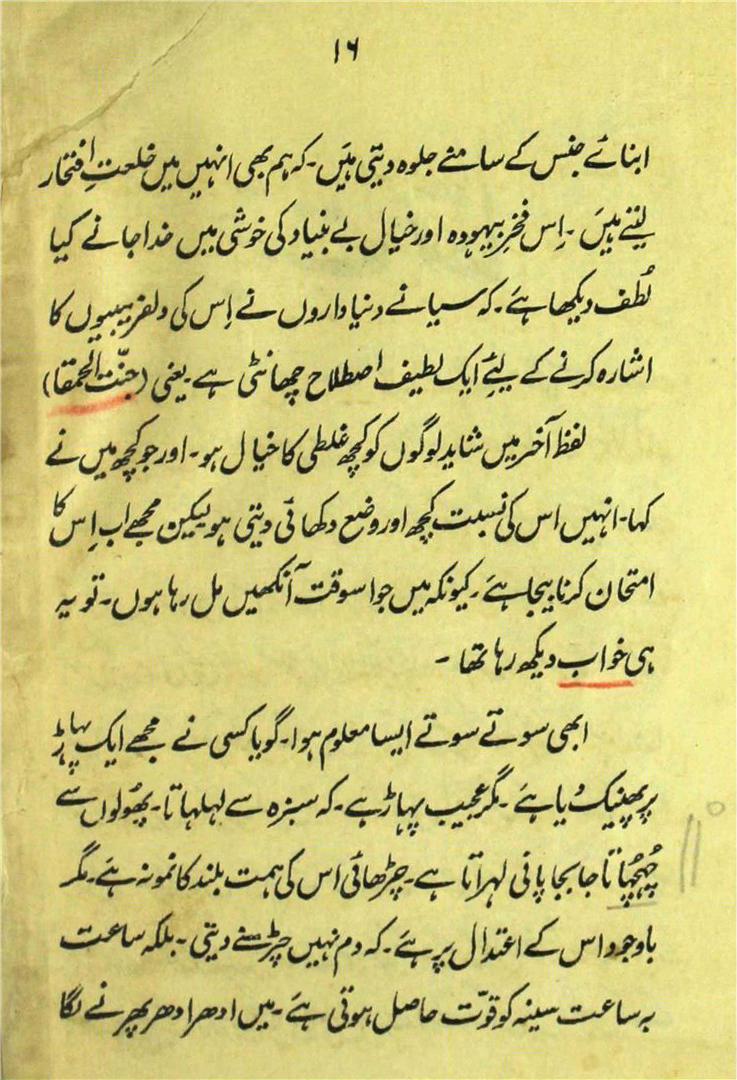 ۱۶
ابنائے جنس کے سامنے جلوہ دیتی ہیَں۔ کہ ہم بھی انہیں میں خلعتِ افتخار
لیتے ہیَں۔ اِس فخرِ بیہودہ اور خیال بے بنیاد کی خوشی میں خدا جانے کیا
لُطف دیکھا ہے۔ کہ سیانے دنیاداروں نے اِس کی دلفریبیوں کا
اشارہ کرنے کے لیئے ایک لطیف اصطلاح چھانٹی ہے۔ یعنی (جنّت الحمقا)
لفظ آخر میں شاید لوگوں کو کچھ غلطی کا خیال ہو۔ اور جو کچھ میں نے
کہا۔ انہیں اس کی نسبت کچھ اور وضع دکھائی دیتی ہو لیکن مجھے اب اِس کا
امتحان کرنا بیجا ہے۔ کیونکہ میں جو اسوقت آنکھیں مل رہا ہوں۔ تو یہ
ہی خواب دیکھ رہا تھا ۔
ابھی سوتے سوتے ایسا معلوم ہوا۔ گویا کسی نے مجھے ایک پہاڑ
پر پھینک دیا ہے۔ مگر عجیب پہاڑ ہے۔ کہ سبزہ سے لہلہاتا۔ پھُولوں سے
چُہچُہاتا جا بجا پانی لہراتا ہے۔ چڑھائی اس کی ہمت بلند کا نمونہ ہے۔ مگر
باوجود اس کے اعتدال پر ہے۔ کہ دم نہیں چڑھنے دیتی۔ بلکہ ساعت
بہ ساعت سینہ کو قوّت حاصل ہوتی ہے۔ میں ادھر ادھر پھرنے لگا